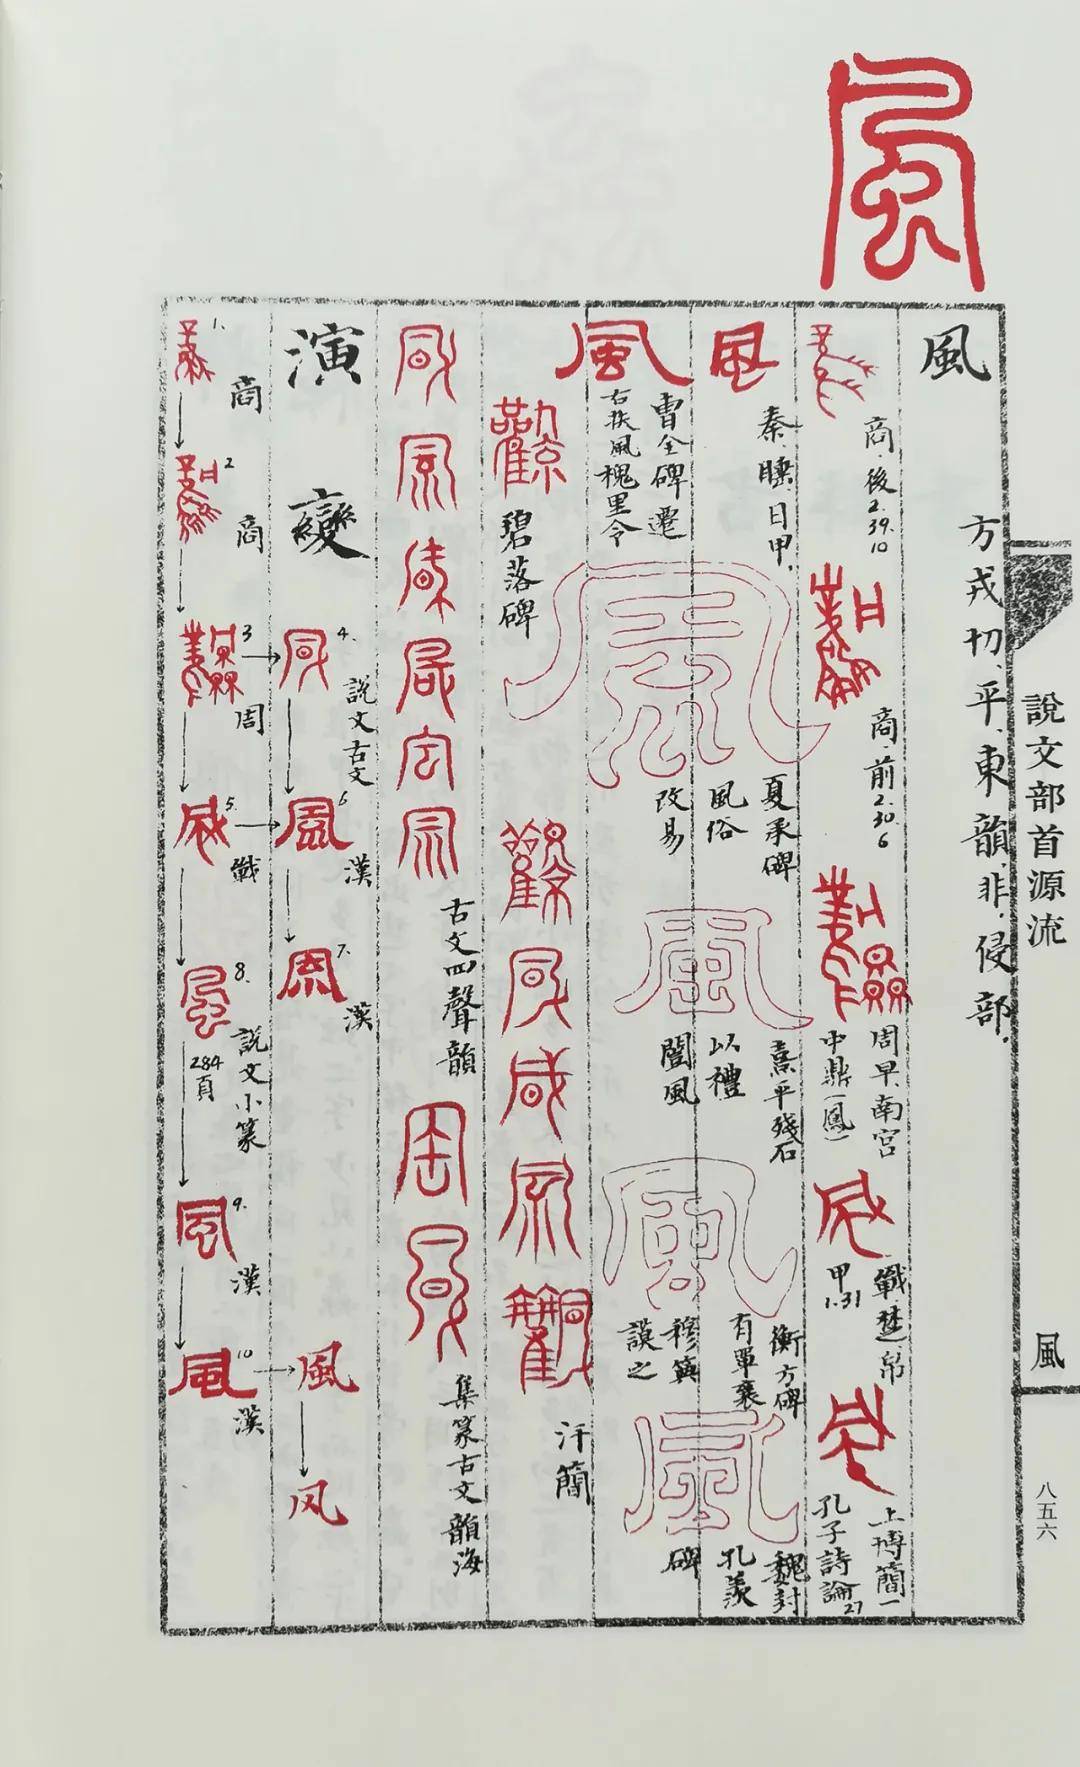 風
說文部首源流
風
八五六
風
方戎切、平、東韻、非、侵部、
商、後2.39.10
商、前2.30.6
周早、南宮
中鼎（鳳）
戰、楚）帛
甲1.31
上博簡一
孔子詩論27
風
秦、睡、日甲、
夏承碑
風俗
改易
熹平殘石
以禮
闓風
衡方碑
有單襄
穆典
謨之
魏封
孔羨
碑
風
曹全碑遷
右扶風槐里令
碧落碑
汗簡
古文四聲韻
集篆古文韻海
演變
1.
商
2
商
3
周
4.
說文古文
5.
戰
6
漢
7.
漢
8.
說文小篆
284頁
9.
風
漢
10
風
漢
風
风